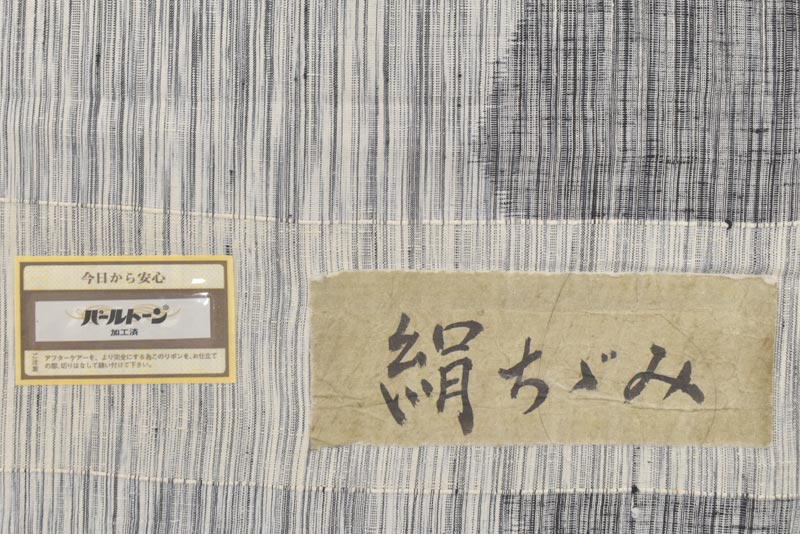 今日から安心
パールトーン®
加工済
ご注意
アフターケアーを、より完全にする為このリボンを、お仕立て
の際、切りはなして縫い付けて下さい。
絹ちゞみ